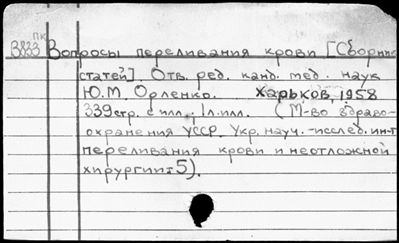 ПК
В823 Вопросы переливания крови [Сборник
статей]. Отв. ред. канд. мед. наук
Ю.М. Орленко. Харьков, 1958
339 стр. с илл.; 1 л. илл. (М-во здраво-
охранения УССР. Укр. науч.-исслед. ин-т
переливания крови и неотложной
хирургии: 5).